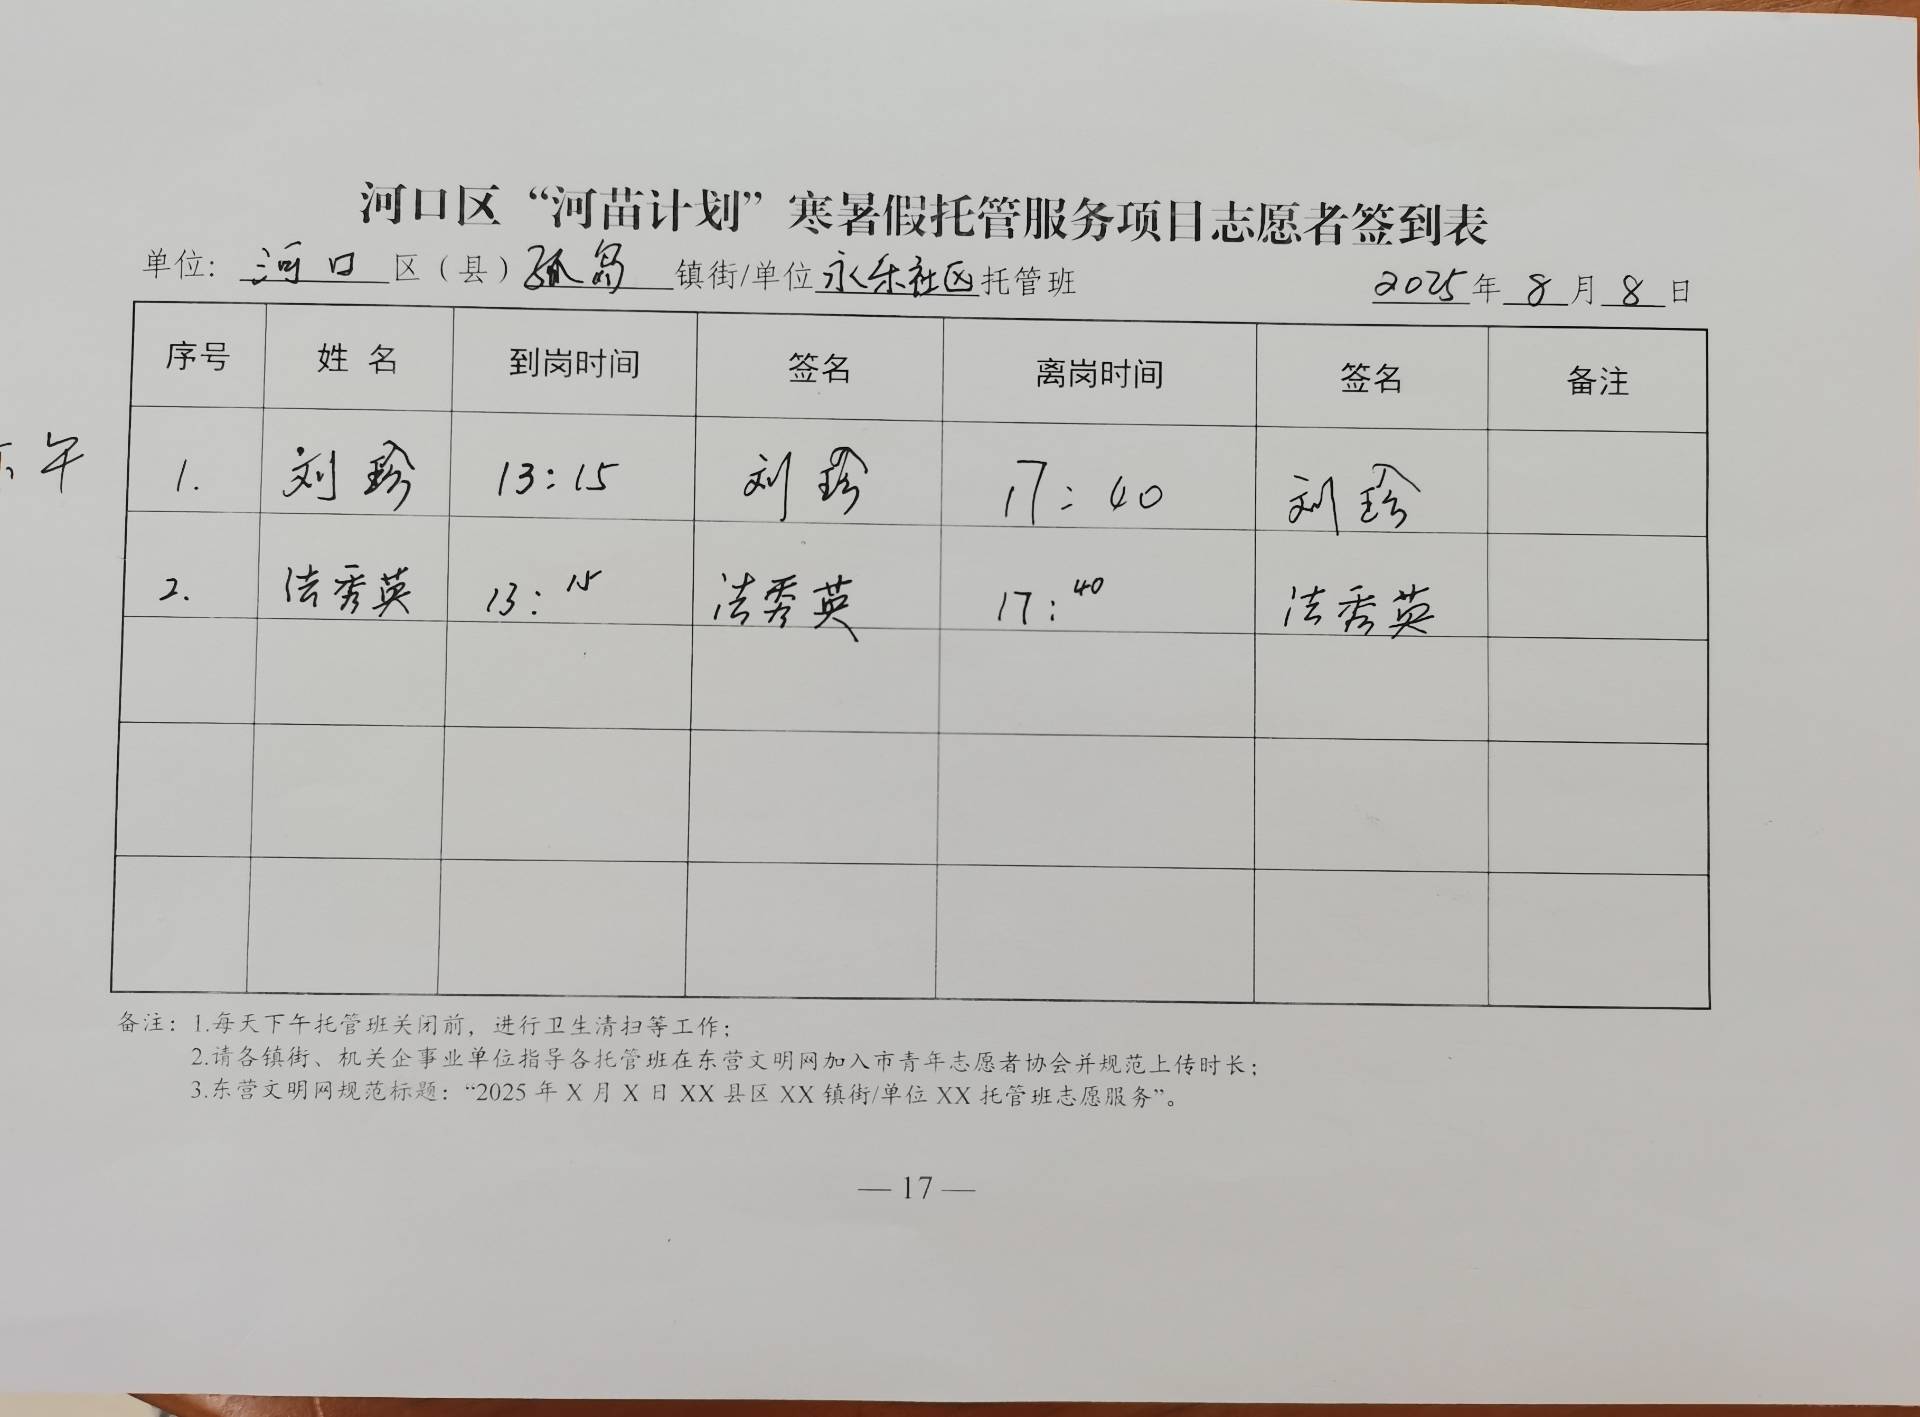 河口区“河苗计划”寒暑假托管服务项目志愿者签到表
单位：河口区（县）孤岛镇街/单位永乐社区托管班 2025年8月8日
序号 姓名 到岗时间 签名 离岗时间 签名 备注
下午 1. 刘珍 13:15 刘珍 17:40 刘珍
2. 法秀英 13:15 法秀英 17:40 法秀英
备注：1.每天下午托管班关闭前，进行卫生清扫等工作；
2.请各镇街、机关企事业单位指导各托管班在东营文明网加入市青年志愿者协会并规范上传时长；
3.东营文明网规范标题：“2025年X月X日XX县区XX镇街/单位XX托管班志愿服务”。
— 17 —